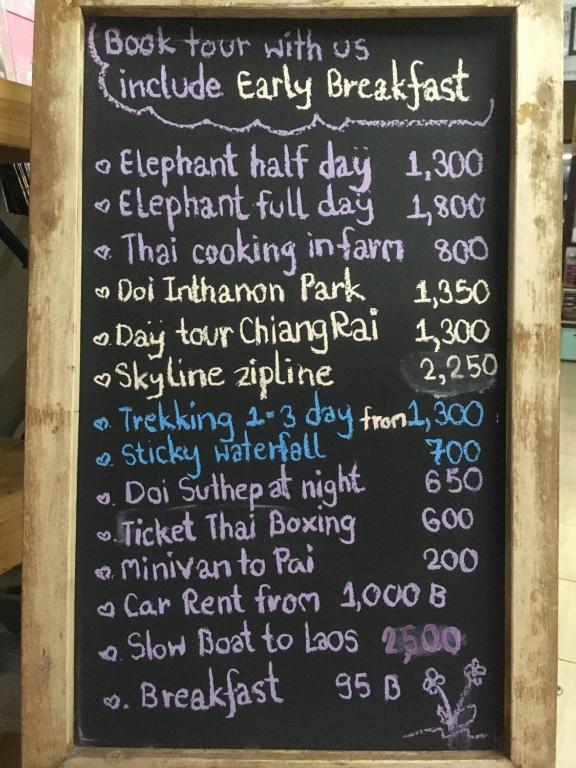 Book tour with us
include Early Breakfast
Elephant half day 1,300
Elephant full day 1,800
Thai cooking in farm 800
Doi Inthanon Park 1,350
Day tour Chiang Rai 1,300
Skyline zipline 2,250
Trekking 1-3 day from 1,300
Sticky waterfall 700
Doi Suthep at night 650
Ticket Thai Boxing 600
minivan to Pai 200
Car Rent from 1,000 B
Slow Boat to Laos 2500
Breakfast 95 B